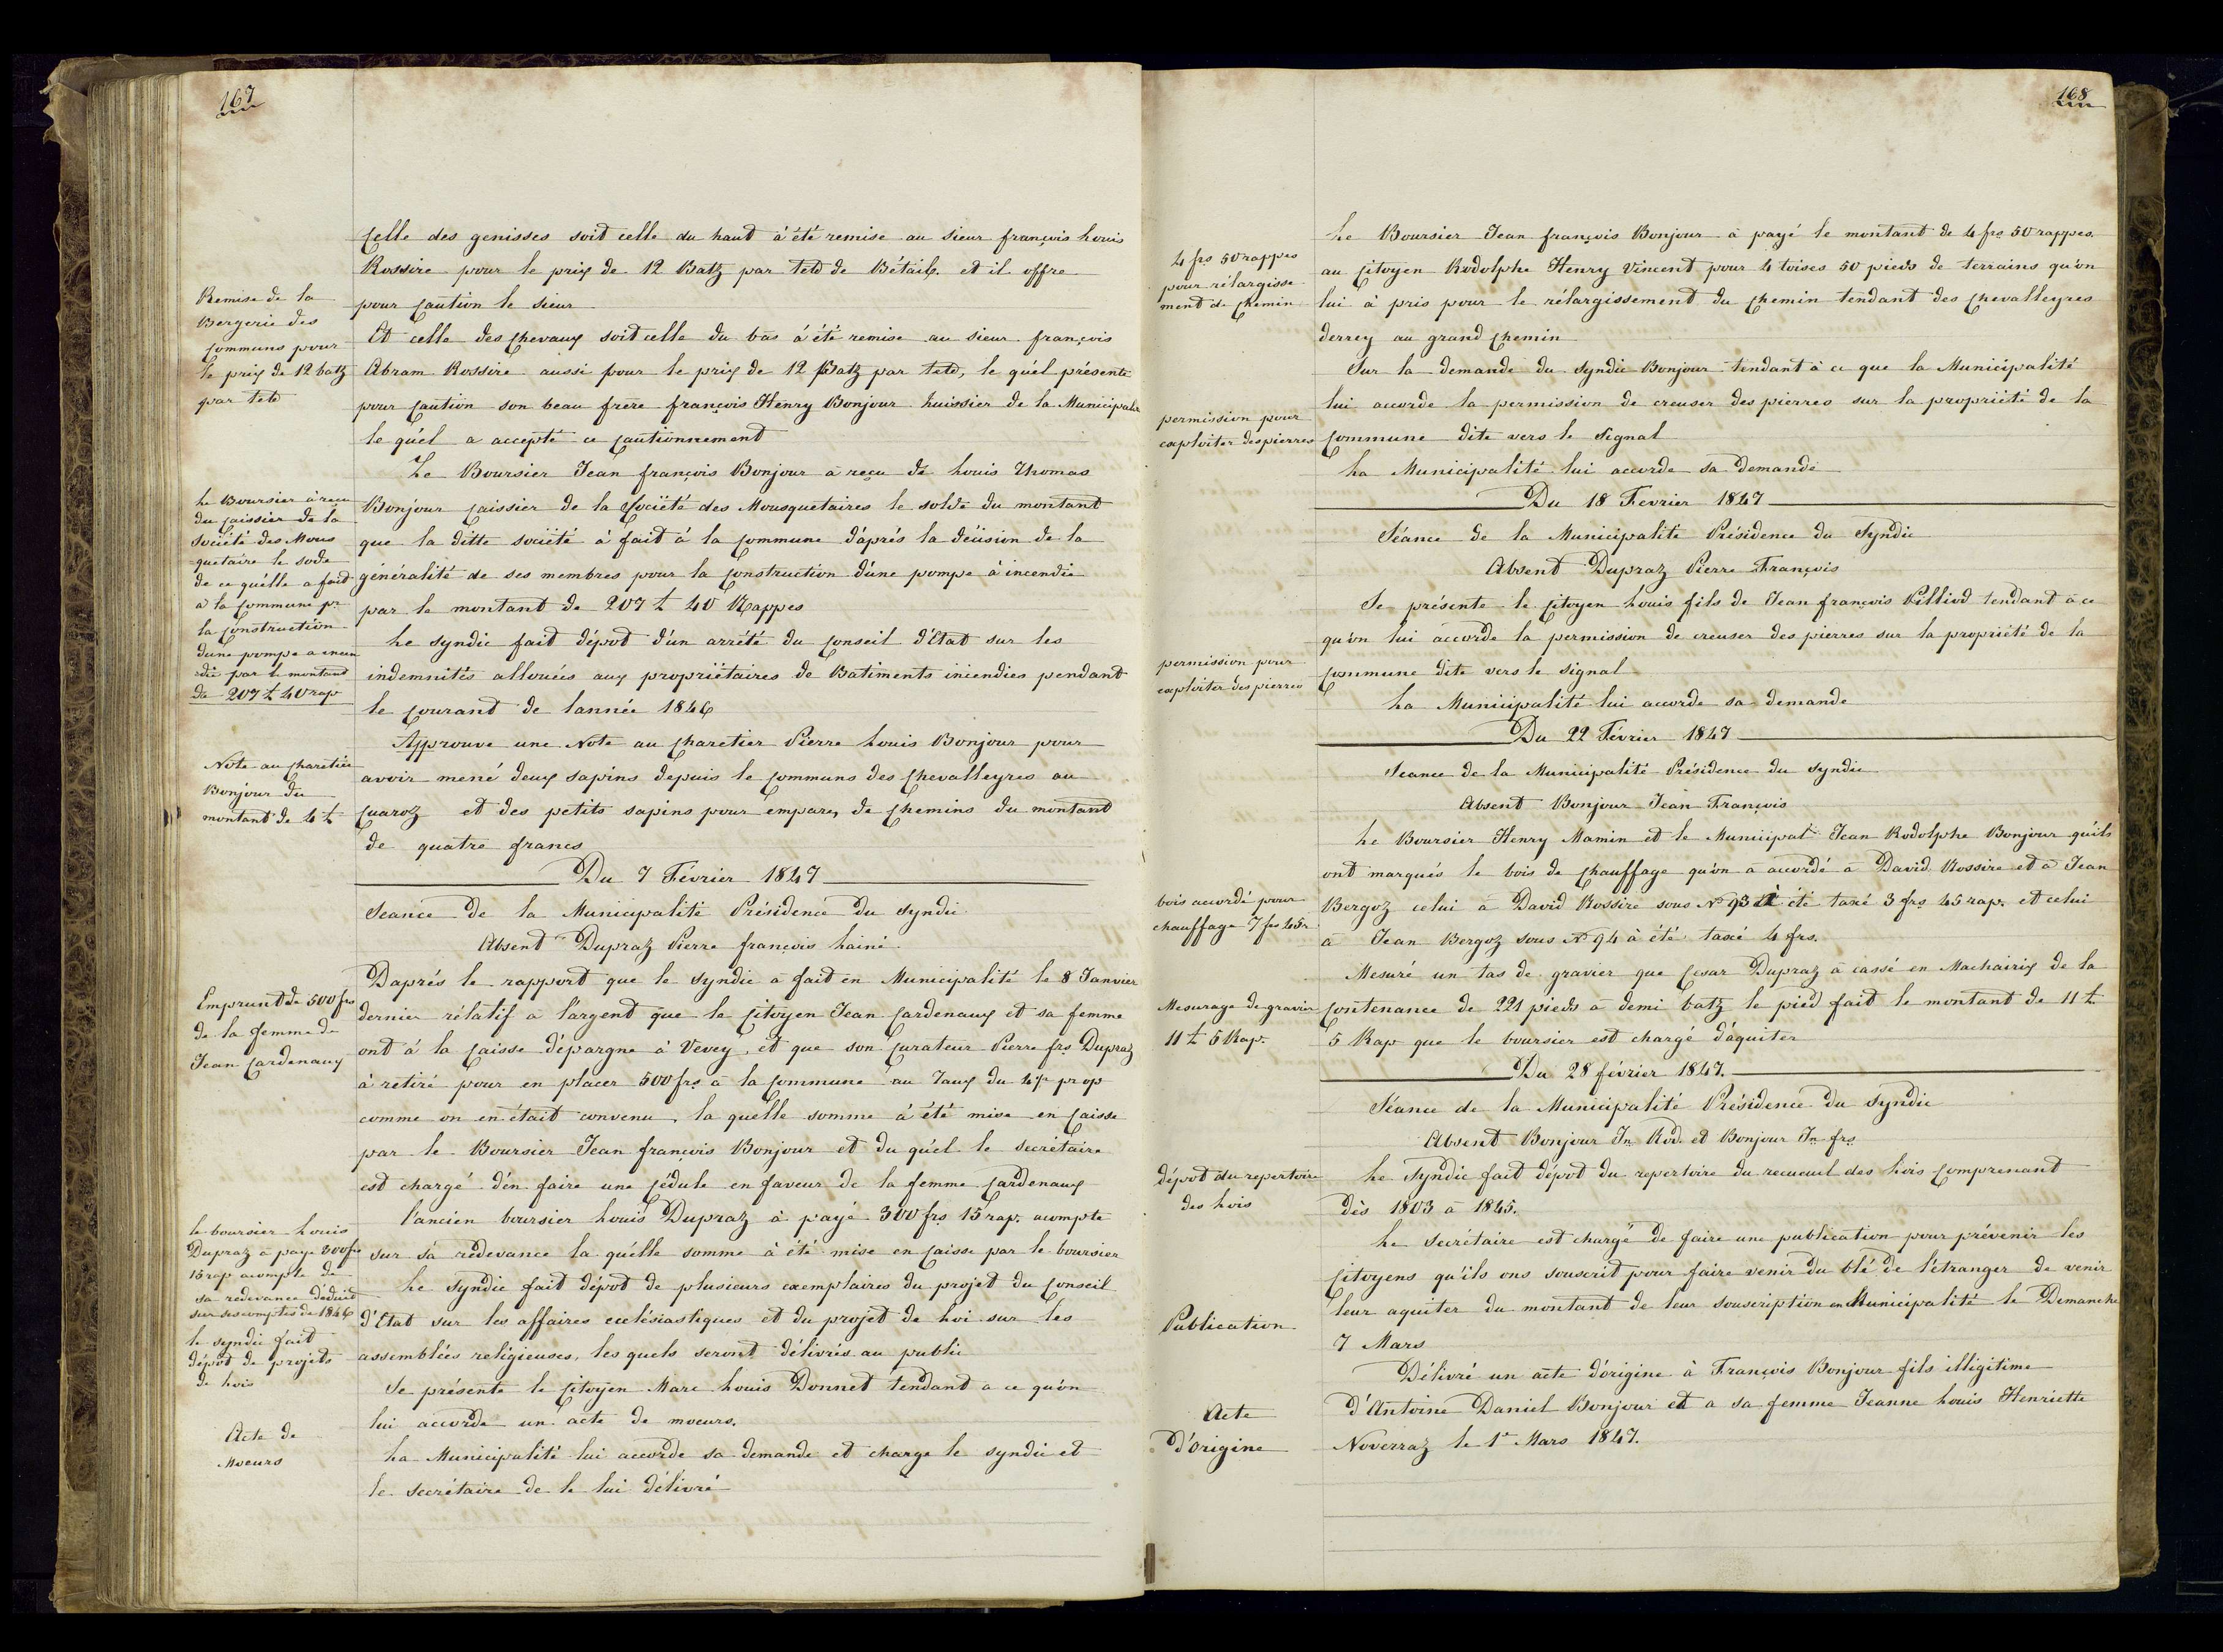 167
Celle des genisses soit celle du haut à été remise au sieur françois Louis
Rossire pour le prix de 12 Batz par tete de Bétail. et il offre
Remise de la
Bergerie des
communs pour
le prix de 12 batz
par tete
pour Caution le sieur
Et celle des Chevaux soit celle du bas á été remise au sieur françois
Abram Rossire aussi pour le prix de 12 Batz par tete, le qu'él présente
pour Caution son beau frère françois Henry Bonjour huissier de la Municipalité
le qu'él a accepté ce Cautionnement
Le Boursier Jean françois Bonjour a reçu de Louis Thomas
Le Boursier à reçu
du Caissier de la
Société des Mous
quetaire le sode
de ce qu'élle a fait
a la Commune pr
la Construction
dune pompe a incen
die par le montant
de 207 £ 40 rap
Bonjour Caissier de la Société des Mousquetaires le solde du montant
que la ditte société à fait á la Commune d'áprés la décision de la
généralité de ses membres pour la Construction d'úne pompe à incendie
par le montant de 207 £ 40 Rappes
Le syndic fait dépot d'ún arrété du Conseil d'Etat sur les
indemnités allouées aux propriétaires de Batiments incendies pendant
le Courant de lannée 1846
Approuve une Note au Charetier Pierre Louis Bonjour pour
Note au Charetier
Bonjour du
montant de 4 £
avoir mené deux sapins depuis le Communs des Chevalleyres au
Cuaroz et des petits sapins pour empares de Chemins du montant
de quatre francs
Du 7 Février 1847
Seance de la Municipalité Présidence du Syndic
Absent Dupraz Pierre françois Lainé
Daprés le rapport que le Syndic a fait en Municipalité le 8 Janvier
Emprunt de 500 frs
de la femme de
Jean Cardenaux
dernier rélatif a l'árgent que le Citoyen Jean Cardenaux et sa femme
ont á la Caisse d'épargne à Vevey, et que son Curateur Pierre frs Dupraz
à retiré pour en placer 500 frs a la Commune au Taux du 4 pr prop
comme on en était convenu, la quélle somme á été mise en Caisse
par le Boursier Jean françois Bonjour et du qu'él le secrétaire
est chargé d'én faire une Cédule en faveur de la femme Cardenaux
l'ancien boursier Louis Dupraz à payé 300 frs 15 rap. acompte
le boursier Louis
Dupraz a paye 300 frs
15 rap acompte de
sa redevance déduit
sur ses comptes de 1846
sur sá redevance la quélle somme à été mise en Caisse par le boursier
Le Syndic fait dépot de plusieurs exemplaires du projet du Conseil
d'Etat sur les affaires eclésiastiques et du projet de Loi sur les
le syndic fait
dépôt de projets
de Lois
assemblées religieuses, les quels seront délivrés au public
Se présente le Citoyen Marc Louis Donnet tendant a ce qu'ón
lui accorde un acte de moeurs.
Acte de
Moeurs
La Municipalité lui accorde sa demande et charge le syndic et
le secrétaire de le lui délivré
168
Le Boursier Jean françois Bonjour à payé le montant de 4 frs 50 rappes.
4 frs 50 rappes
pour rélargisse
ment de Chemin
au Citoyen Rodolphe Henry Vincent pour 4 toises 50 pieds de terrains qu'ón
lui à pris pour le rélargissement du Chemin tendant des Chevalleyres
derrey au grand Chemin
Sur la demande du Syndic Bonjour tendant à ce que la Municipalité
permission pour
exploiter des pierres
lui accorde la permission de creuser des pierres sur la propriété de la
Commune dite vers le Signal
La Municipalité lui accorde sa demande
Du 18 Fevrier 1847
Séance de la Municipalité Présidence du Syndic
Absent Dupraz Pierre François
Se présente le Citoyen Louis fils de Jean françois Pilliod tendant à ce
qu'ón lui accorde la permission de creuser des pierres sur la propriété de la
permission pour
exploiter des pierres
Commune dite vers le Signal
La Municipalité lui accorde sa demande
Du 22 Février 1847
Seance de la Municipalité Présidence du Syndic
Absent Bonjour Jean François
Le Boursier Henry Mamin et le Municipal Jean Rodolphe Bonjour qu'ils
ont marqués le bois de Chauffage qu'ón a accordé a David Rossire et a Jean
bois accordé pour
chauffage 7 frs 45 r.
Bergoz celui a David Rossire sous No 93 à été taxé 3 frs 45 rap. et celui
a Jean Bergoz sous No 94 à été taxé 4 frs.
Mesuré un tas de gravier que Cesar Dupraz a cassé en Machairix de la
Mesurage de gravier
11 £ 5 Rap.
Contenance de 221 pieds a demi batz le pied fait le montant de 11 £
5 Rap que le boursier est chargé d'áquiter
Du 28 février 1847.
Séance de la Municipalité Présidence du Syndic
Absent Bonjour Jn Rod. et Bonjour Jn frs
dépot du repertoire
des Lois
Le Syndic fait dépot du repertoire du recueuil des Lois Comprenant
dès 1803 a 1845.
Le secrétaire est chargé de faire une publication pour prévenir les
Citoyens qu'ils ons souscrit pour faire venir du blé de l'étranger de venir
Publication
leur aquiter du montant de leur souscription en Municipalité le Demanche
7 Mars
Délivré un acte d'órigine à François Bonjour fils illigitime
Acte
d'origine
d'Antoine Daniel Bonjour et a sa femme Jeanne Louis Henriette
Noverraz le 1r Mars 1847.